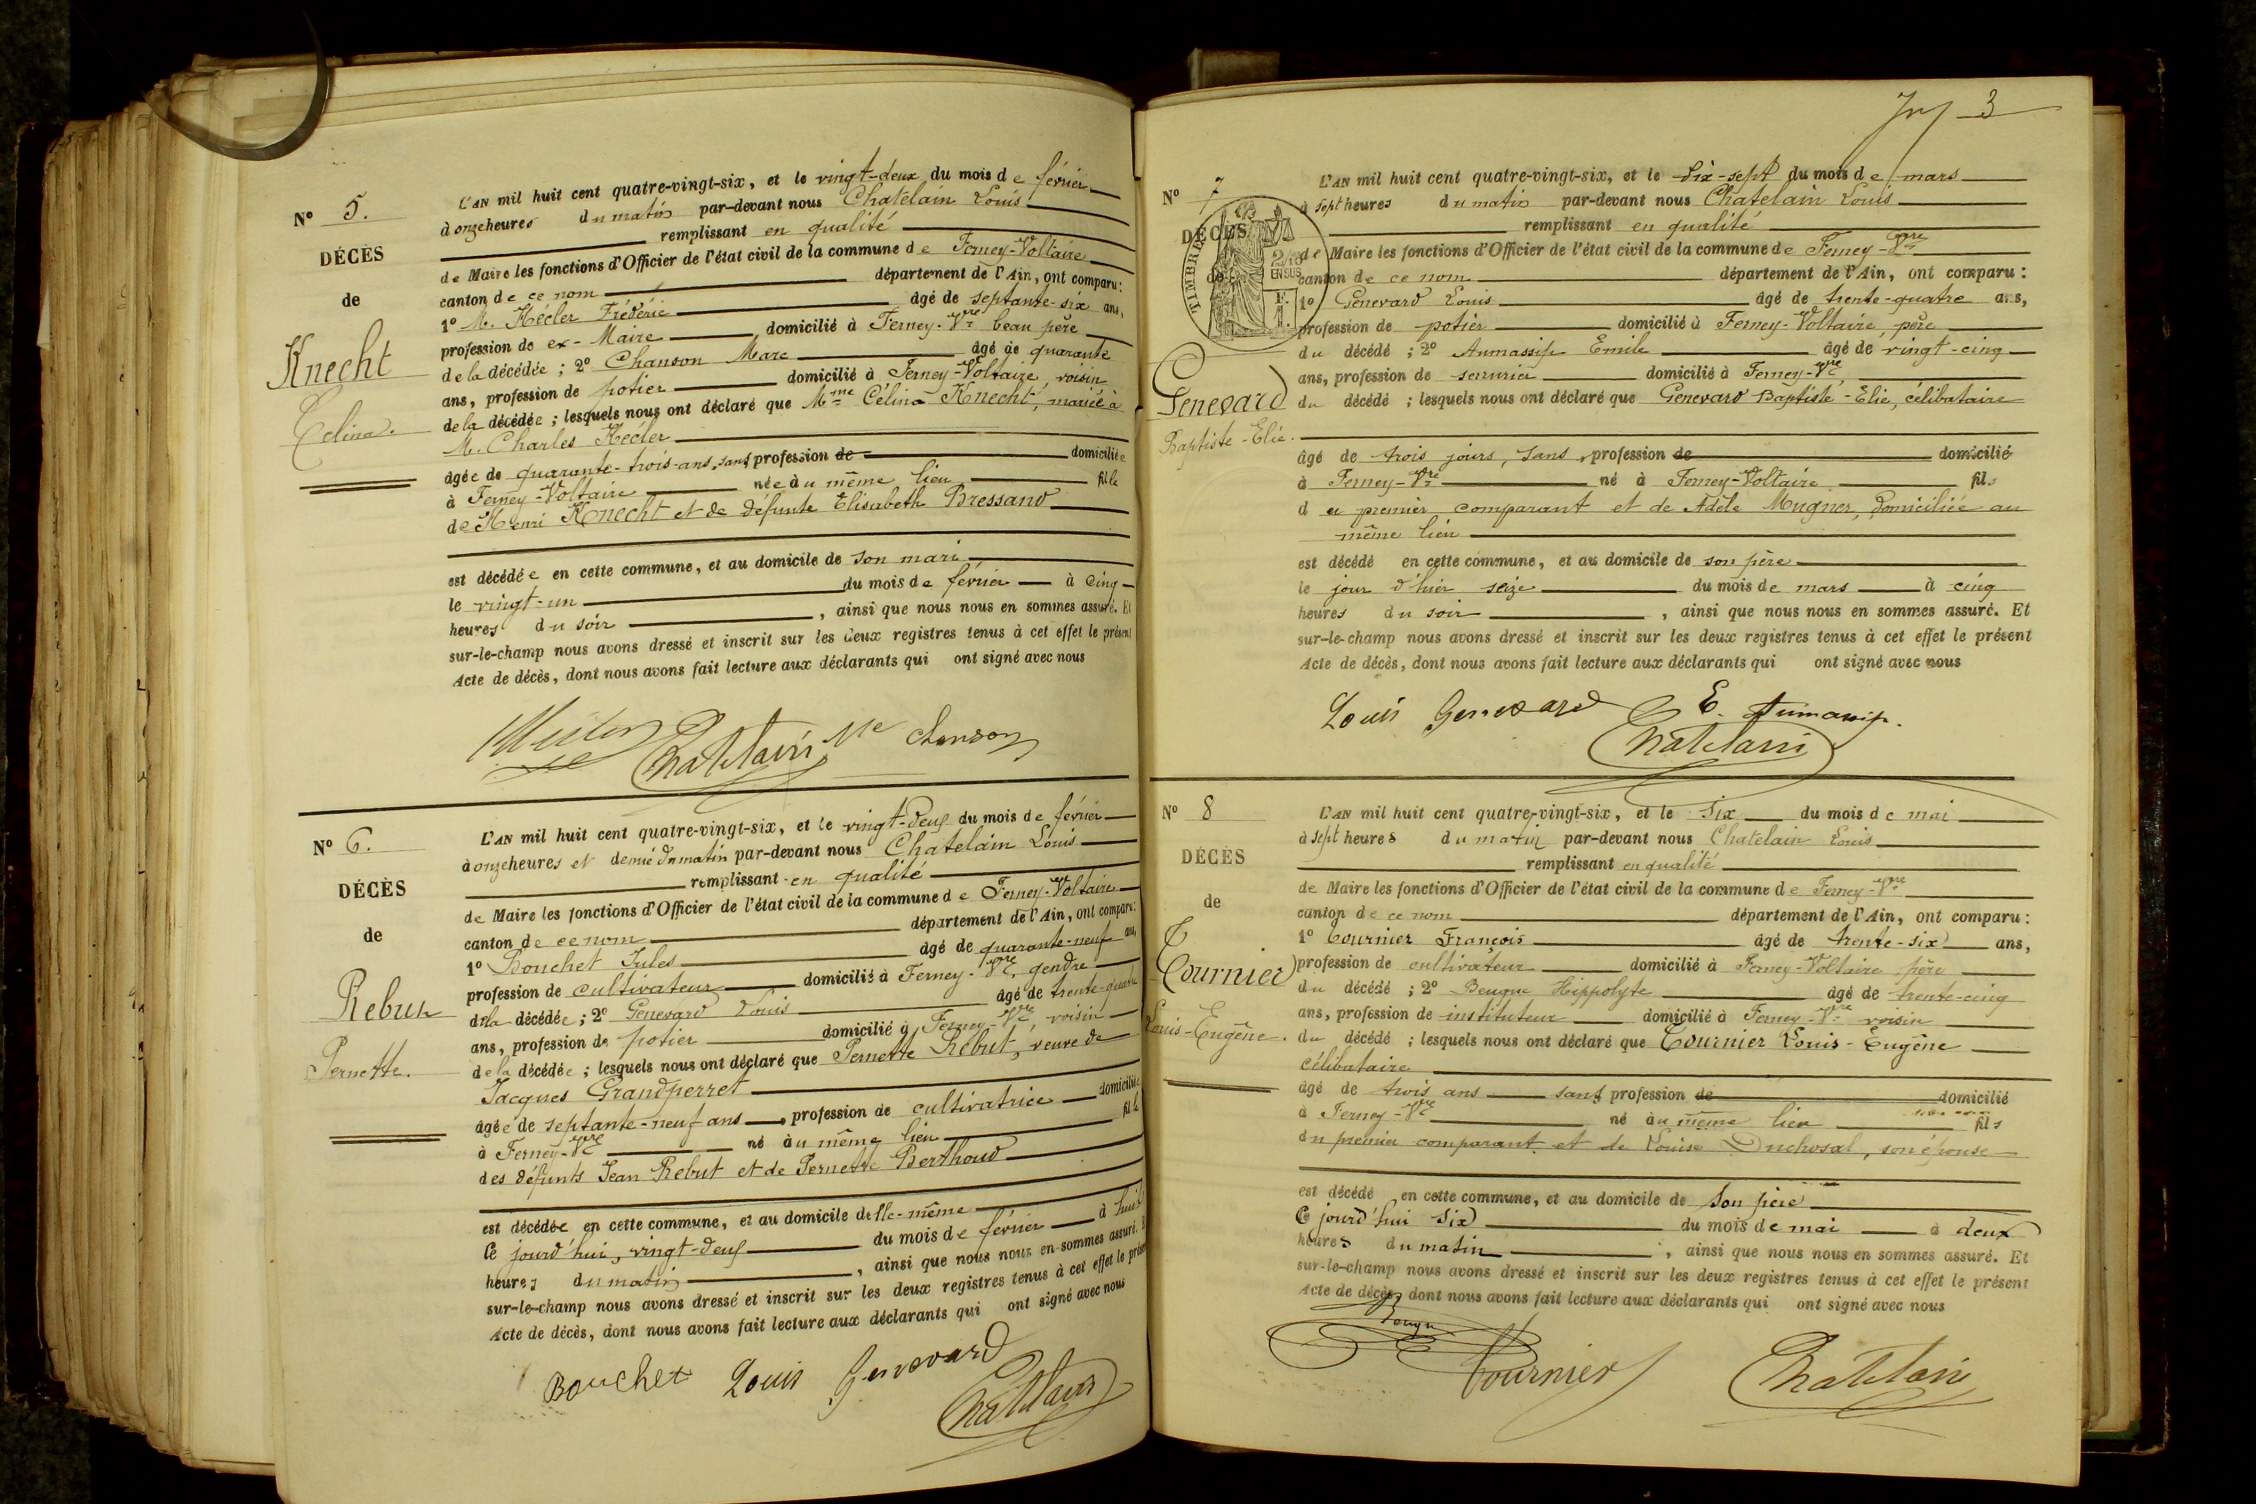 N° 5.
DÉCÈS
de
Knecht
Célina.
L'AN mil huit cent quatre-vingt-six, et le vingt-deux du mois de février
à onze heures du matin par-devant nous Chatelain Louis
remplissant en qualité
de Maire les fonctions d'Officier de l'état civil de la commune de Ferney-Voltaire
canton de ce nom département de l'Ain, ont comparu :
1° M. Hécler Frédéric âgé de septante-six ans,
profession de ex-Maire domicilié à Ferney-Vre beau père
de la décédée ; 2° Chanson Marc âgé de quarante
ans, profession de potier domicilié à Ferney-Voltaire, voisin
de la décédée ; lesquels nous ont déclaré que Mme Célina Knecht, mariée à
M. Charles Hécler
âgée de quarante-trois-ans, sans profession de domiciliée
à Ferney-Voltaire née au même lieu fille
de Henri Knecht et de défunte Elisabeth Bressand
est décédée en cette commune, et au domicile de son mari
le vingt-un du mois de février à cinq
heures du soir, ainsi que nous nous en sommes assuré. Et
sur-le-champ nous avons dressé et inscrit sur les deux registres tenus à cet effet le présent
Acte de décès, dont nous avons fait lecture aux déclarants qui ont signé avec nous
Chatelain Mc Chanson
N° 6.
DÉCÈS
de
Rebut
Pernette.
L'AN mil huit cent quatre-vingt-six, et le vingt-deux du mois de février
à onze heures et demie du matin par-devant nous Chatelain Louis
remplissant en qualité
de Maire les fonctions d'Officier de l'état civil de la commune de Ferney-Voltaire
canton de ce nom département de l'Ain, ont comparu :
1° Bouchet Jules âgé de quarante-neuf ans,
profession de cultivateur domicilié à Ferney-Vre, gendre
de la décédée ; 2° Genevard Louis âgé de trente-quatre
ans, profession de potier domicilié à Ferney-Vre, voisin
de la décédée ; lesquels nous ont déclaré que Pernette Rebut, veuve de
Jacques Grandperret
âgée de septante-neuf ans, profession de cultivatrice domiciliée
à Ferney-Vre né au même lieu fille
des défunts Jean Rebut et de Pernette Berthoud
est décédée en cette commune, et au domicile d'elle-même
Ce jourd'hui, vingt-deux du mois de février à huit
heures du matin, ainsi que nous nous en sommes assuré. Et
sur-le-champ nous avons dressé et inscrit sur les deux registres tenus à cet effet le présent
Acte de décès, dont nous avons fait lecture aux déclarants qui ont signé avec nous
Bouchet Louis Genevard
Chatelain
3
N° 7
DÉCÈS
de
TIMBRE
EN SUS
Genevard
Baptiste-Elie.
L'AN mil huit cent quatre-vingt-six, et le dix-sept du mois de mars
à sept heures du matin par-devant nous Chatelain Louis
remplissant en qualité
de Maire les fonctions d'Officier de l'état civil de la commune de Ferney-Vre
canton de ce nom département de l'Ain, ont comparu :
1° Genevard Louis âgé de trente-quatre ans,
profession de potier domicilié à Ferney-Voltaire, père
du décédé ; 2° Aumassip Emile âgé de vingt-cinq
ans, profession de serrurier domicilié à Ferney-Vre,
du décédé ; lesquels nous ont déclaré que Genevard Baptiste-Elie, célibataire
âgé de trois jours, sans profession de domicilié
à Ferney-Vre né à Ferney-Voltaire fils
du premier comparant et de Adèle Mugner, domiciliée au
même lieu
est décédé en cette commune, et au domicile de son père
le jour d'hier seize du mois de mars à cinq
heures du soir, ainsi que nous nous en sommes assuré. Et
sur-le-champ nous avons dressé et inscrit sur les deux registres tenus à cet effet le présent
Acte de décès, dont nous avons fait lecture aux déclarants qui ont signé avec nous
Louis Genevard E. Aumassip.
Chatelain
N° 8
DÉCÈS
de
Tournier
Louis-Eugène.
L'AN mil huit cent quatre-vingt-six, et le six du mois de mai
à sept heures du matin par-devant nous Chatelain Louis
remplissant en qualité
de Maire les fonctions d'Officier de l'état civil de la commune de Ferney-Vre
canton de ce nom département de l'Ain, ont comparu :
1° Tournier François âgé de trente-six ans,
profession de cultivateur domicilié à Ferney-Voltaire père
du décédé ; 2° Beugue Hippolyte âgé de trente-cinq
ans, profession de instituteur domicilié à Ferney-Vre voisin
du décédé ; lesquels nous ont déclaré que Tournier Louis-Eugène
célibataire
âgé de trois ans sans profession de domicilié
à Ferney-Vre né au même lieu fils
du premier comparant et de Louise Duchosal, son épouse
est décédé en cette commune, et au domicile de son père
Ce jourd'hui six du mois de mai à deux
heures du matin, ainsi que nous nous en sommes assuré. Et
sur-le-champ nous avons dressé et inscrit sur les deux registres tenus à cet effet le présent
Acte de décès, dont nous avons fait lecture aux déclarants qui ont signé avec nous
Tournier Chatelain